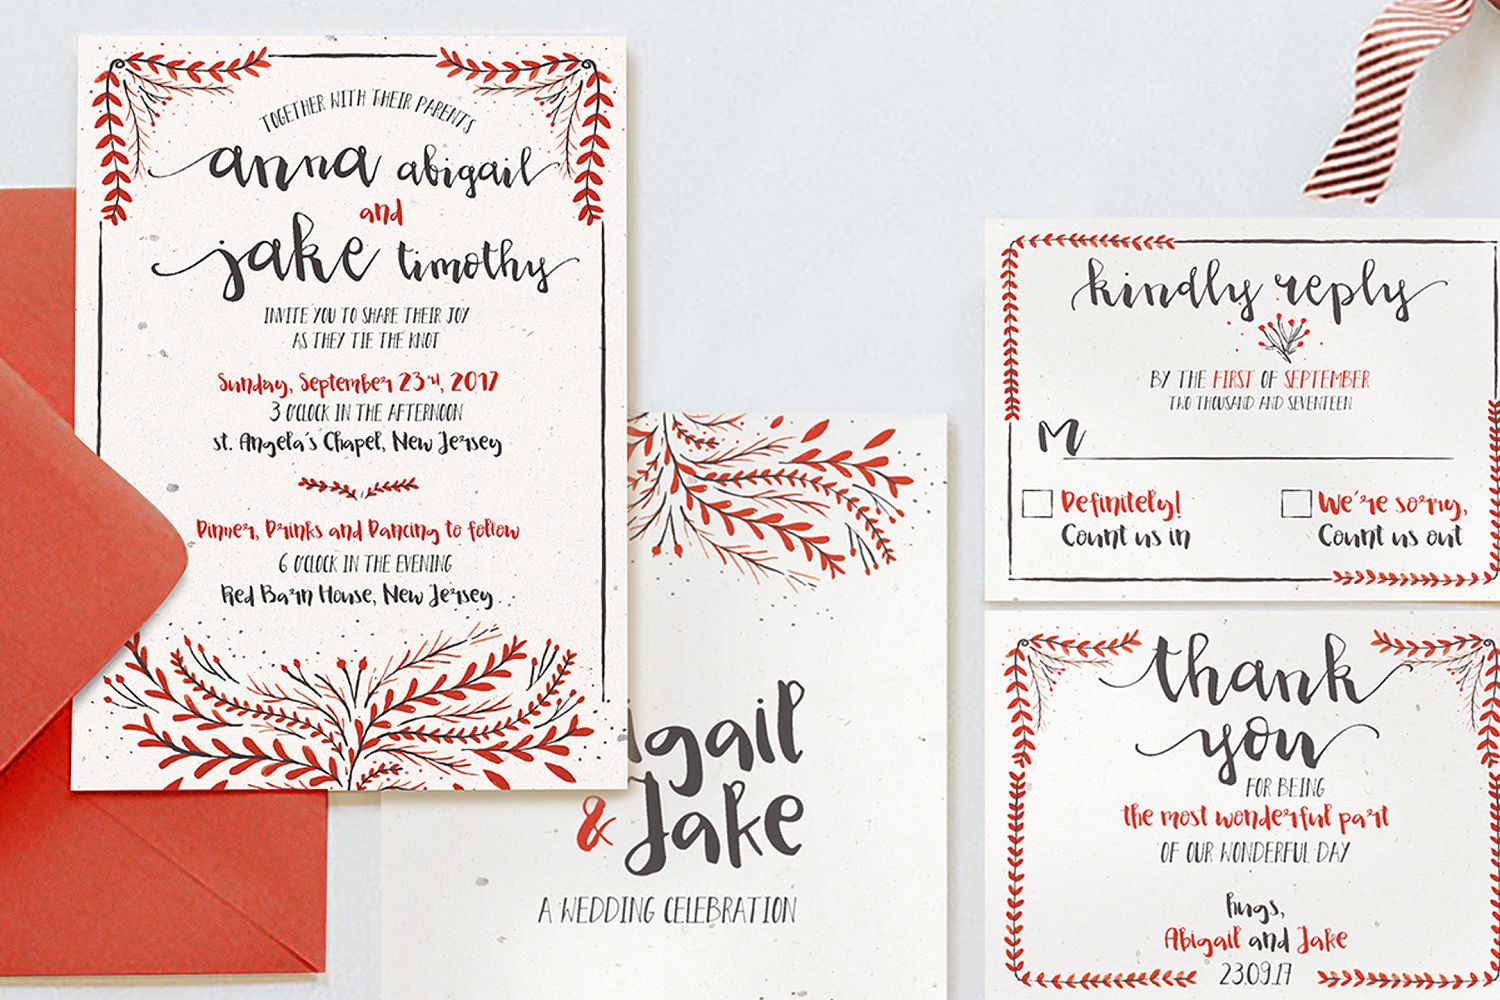 TOGETHER WITH THEIR PARENTS
anna abigail
and
jake timothy
INVITE YOU TO SHARE THEIR JOY
AS THEY TIE THE KNOT
Sunday, September 23rd, 2017
3 O'CLOCK IN THE AFTERNOON
st. Angela's Chapel, New Jersey
Dinner, Drinks and Dancing to follow
6 O'CLOCK IN THE EVENING
Red Barn House, New Jersey
igail
& Jake
A WEDDING CELEBRATION
kindly reply
BY THE FIRST OF SEPTEMBER
TWO THOUSAND AND SEVENTEEN
M
Definitely!
Count us in
We're sorry,
Count us out
thank
you
FOR BEING
the most wonderful part
OF OUR WONDERFUL DAY
hugs,
Abigail and Jake
23.09.17